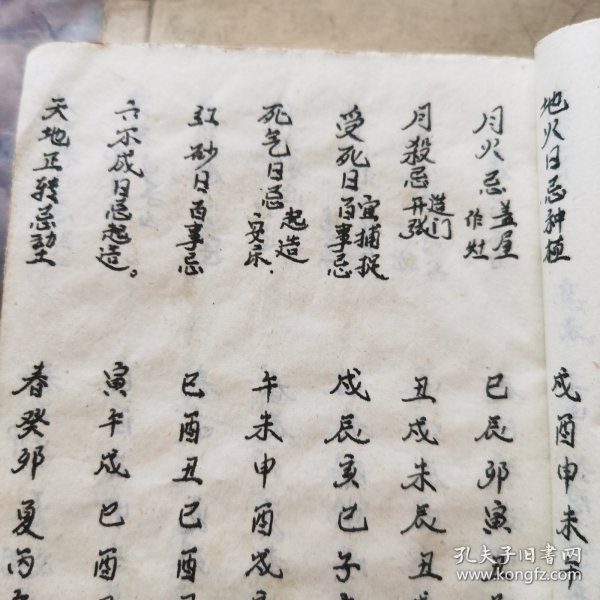 地火日忌种植
戌酉申未午
月火忌盖屋作灶
巳辰卯寅
月殺忌造门开張
丑戌未辰丑
受死日宜捕捉百事忌
戌辰亥巳子
死气日忌起造安床
午未申酉戌
红砂日百事忌
巳酉丑巳酉
六不成日忌起造。
寅午戌巳酉
天地正转忌動土
春癸卯夏丙
孔夫子旧书网
www.kongfz.com